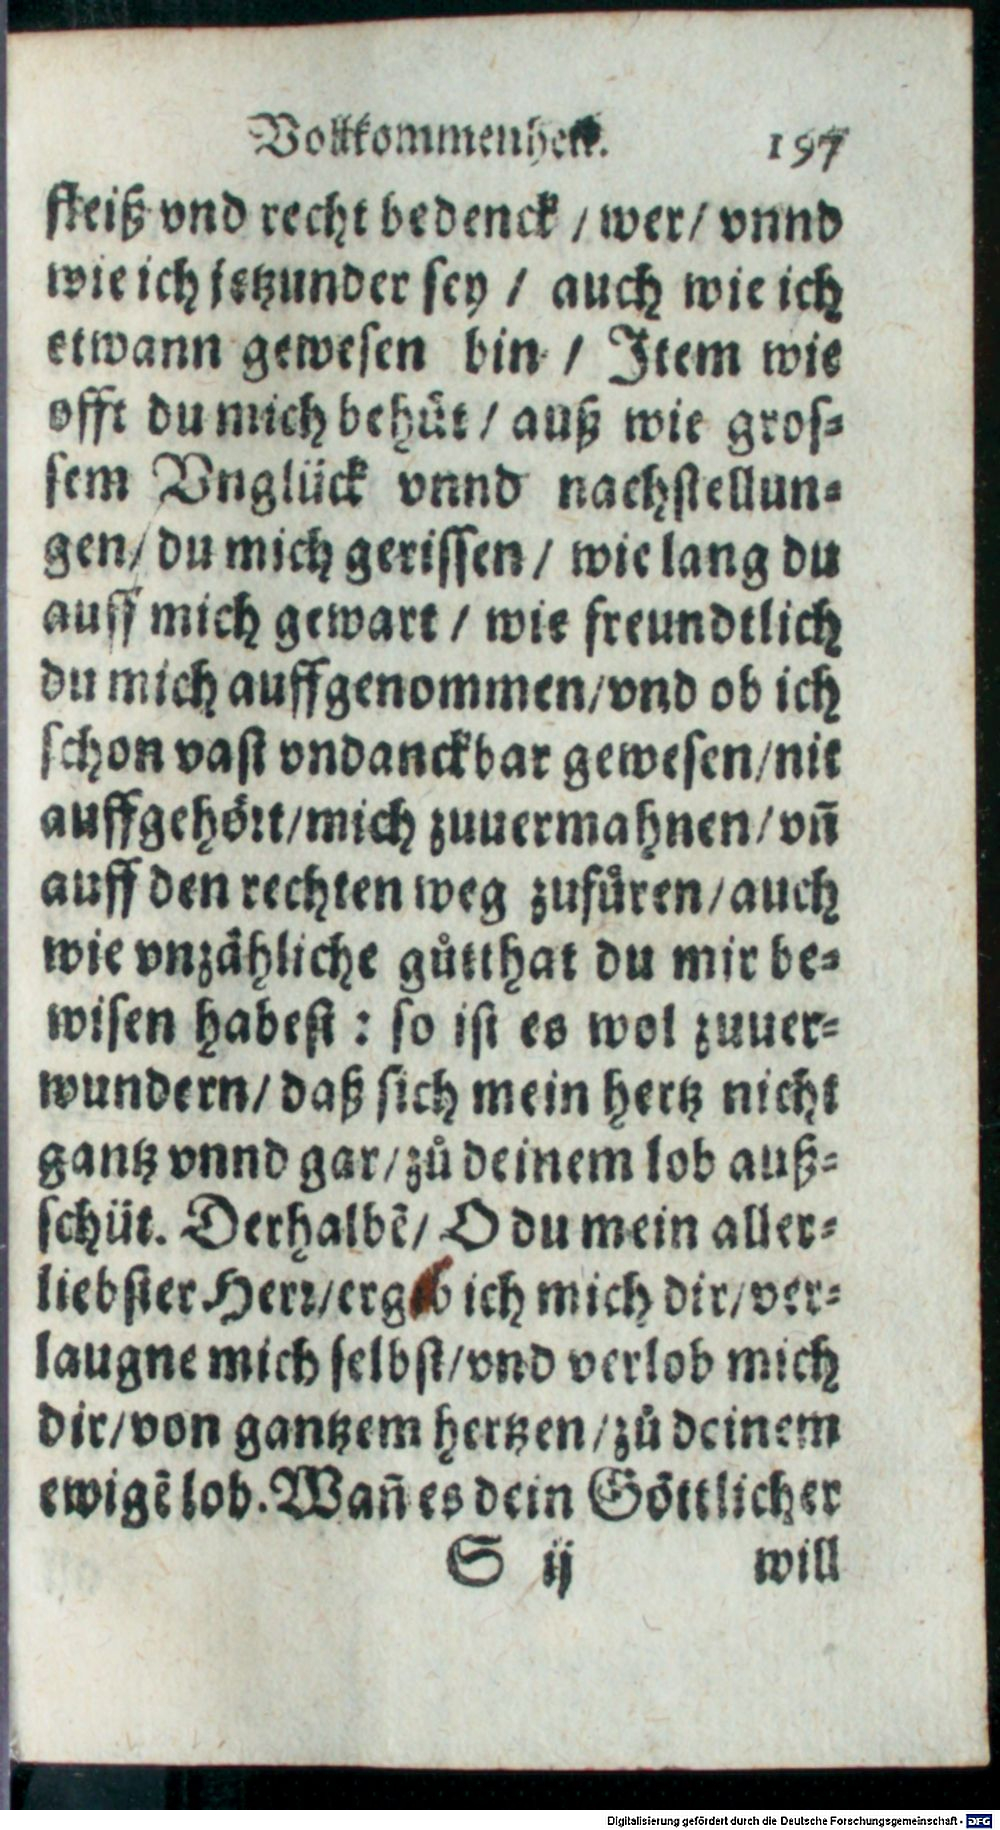 Vollkommenheit. 197
fleiß vnd recht bedenck / wer / vnnd
wie ich jetzunder sey / auch wie ich
etwann gewesen bin / Item wie
offt du mich behuͤt / auß wie gros-
sem Vnglück vnnd nachstellun-
gen / du mich gerissen / wie lang du
auff mich gewart / wie freundtlich
du mich auffgenommen / vnd ob ich
schon vast vndanckbar gewesen / nit
auffgehoͤrt / mich zuuermahnen / vn̄
auff den rechten weg zufuͤren / auch
wie vnzaͤhliche guͤtthat du mir be-
wisen habest : so ist es wol zuuer-
wundern / daß sich mein hertz nicht
gantz vnnd gar / zů deinem lob auß-
schüt. Derhalbē / O du mein aller-
liebster Herr / ergib ich mich dir / ver-
laugne mich selbst / vnd verlob mich
dir / von gantzem hertzen / zů deinem
ewigē lob. Wan̄ es dein Goͤttlicher
S ij will
Digitalisierung gefördert durch die Deutsche Forschungsgemeinschaft - DFG